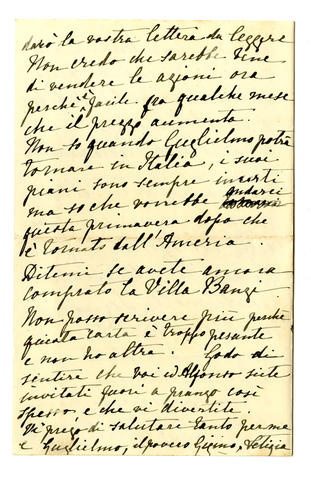 darò la vostra lettera da leggere
Non credo che sarebbe bene
di vendere le azioni ora
perchè è facile fra qualche mese
che il prezzo aumenta.
Non so quando Guglielmo potrà
tornare in Italia, i suoi
piani sono sempre incerti
ma so che vorrebbe andarci
questa primavera dopo che
è tornato dall'America.
Ditemi se avete ancora
comprato la Villa Banzi
Non posso scrivere più perchè
questa carta è troppo pesante
e non ho altra. Godo di
sentire che voi ed Alfonso siete
invitati fuori a pranzo così
spesso, e che vi divertite.
Vi prego di salutare tanto per me
e Guglielmo, il povero Gigino, Letizia